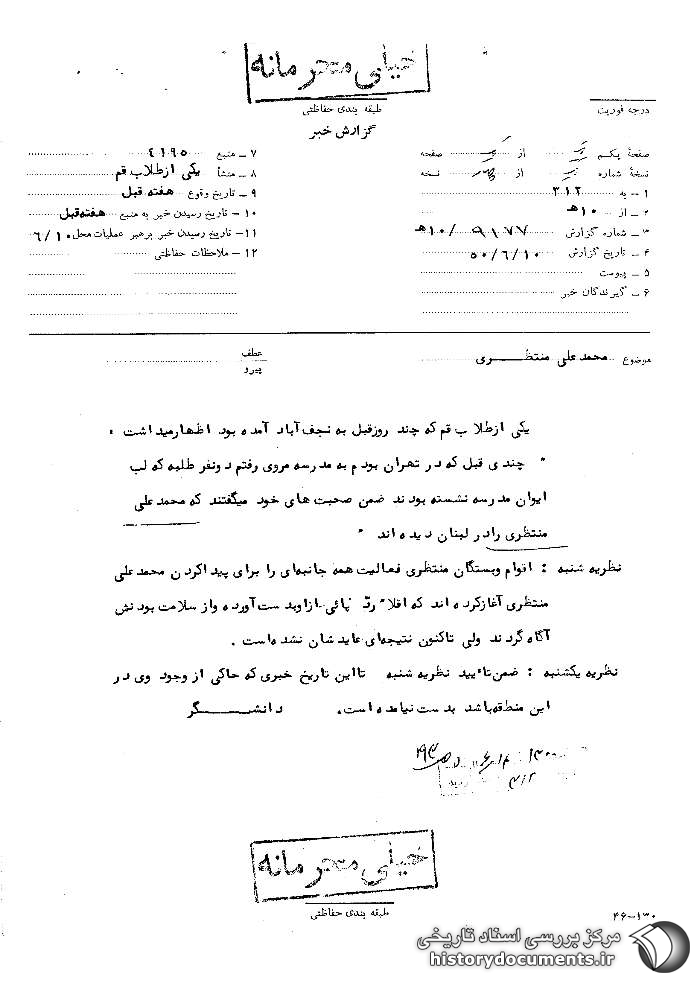 خیلی محرمانه
طبقه بندی حفاظتی
درجه فوریت
گزارش خبر
صفحهٔ یکم از صفحه
نسخهٔ شماره از نسخه
۱ – به ۳۱۲
۲ – از ۱۰ هـ
۳ – شماره گزارش ۹۱۷۷ /۱۰هـ
۴ – تاریخ گزارش ۵۰/۶/۱۰
۵ – پیوست
۶ – گیرندگان خبر
۷ – منبع ۴۱۹۵
۸ – منشأ یکی از طلاب قم
۹ – تاریخ وقوع هفته قبل
۱۰ – تاریخ رسیدن خبر به منبع هفته قبل
۱۱ – تاریخ رسیدن خبر برهبر عملیات محل ۶/۱۰
۱۲ – ملاحظات حفاظتی
موضوع محمد علی منتظری
عطف
پیرو
یکی از طلاب قم که چند روز قبل به نجف آباد آمده بود اظهار میداشت :
" چندی قبل که در تهران بودم به مدرسه مروی رفتم دو نفر طلبه که لب
ایوان مدرسه نشسته بودند ضمن صحبت های خود میگفتند که محمد علی
منتظری را در لبنان دیده اند "
نظریه شنبه : اقوام وبستگان منتظری فعالیت همه جانبه‌ای را برای پیدا کردن محمد علی
منتظری آغاز کرده اند که اقلا" رد پائی از او بدست آورده و از سلامت بودنش
آگاه گردند ولی تاکنون نتیجه‌ای عایدشان نشده است .
نظریه یکشنبه : ضمن تأیید نظریه شنبه تا این تاریخ خبری که حاکی از وجود وی در
این منطقه باشد بدست نیامده است . دانشگر
۳۱۲
خیلی محرمانه
طبقه بندی حفاظتی
۴۶-۱۳۰
مرکز بررسی اسناد تاریخی
historydocuments.ir